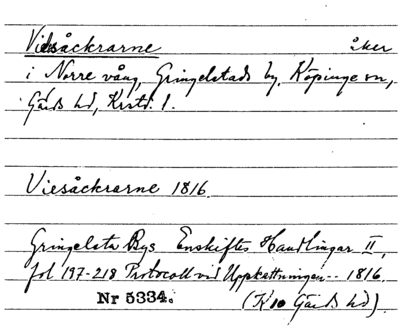 Viesåckrarne åker
i Norre vång, Gringelstads by, Köpinge sn,
Gärds hd, Krstd. l.
Viesåckrarne 1816.
Gringelsta Bys Enskiftes Handlingar II,
fol 197-218 Protocoll vid Uppskattningen -- 1816.
Nr 5334. (K10 Gärds hd).